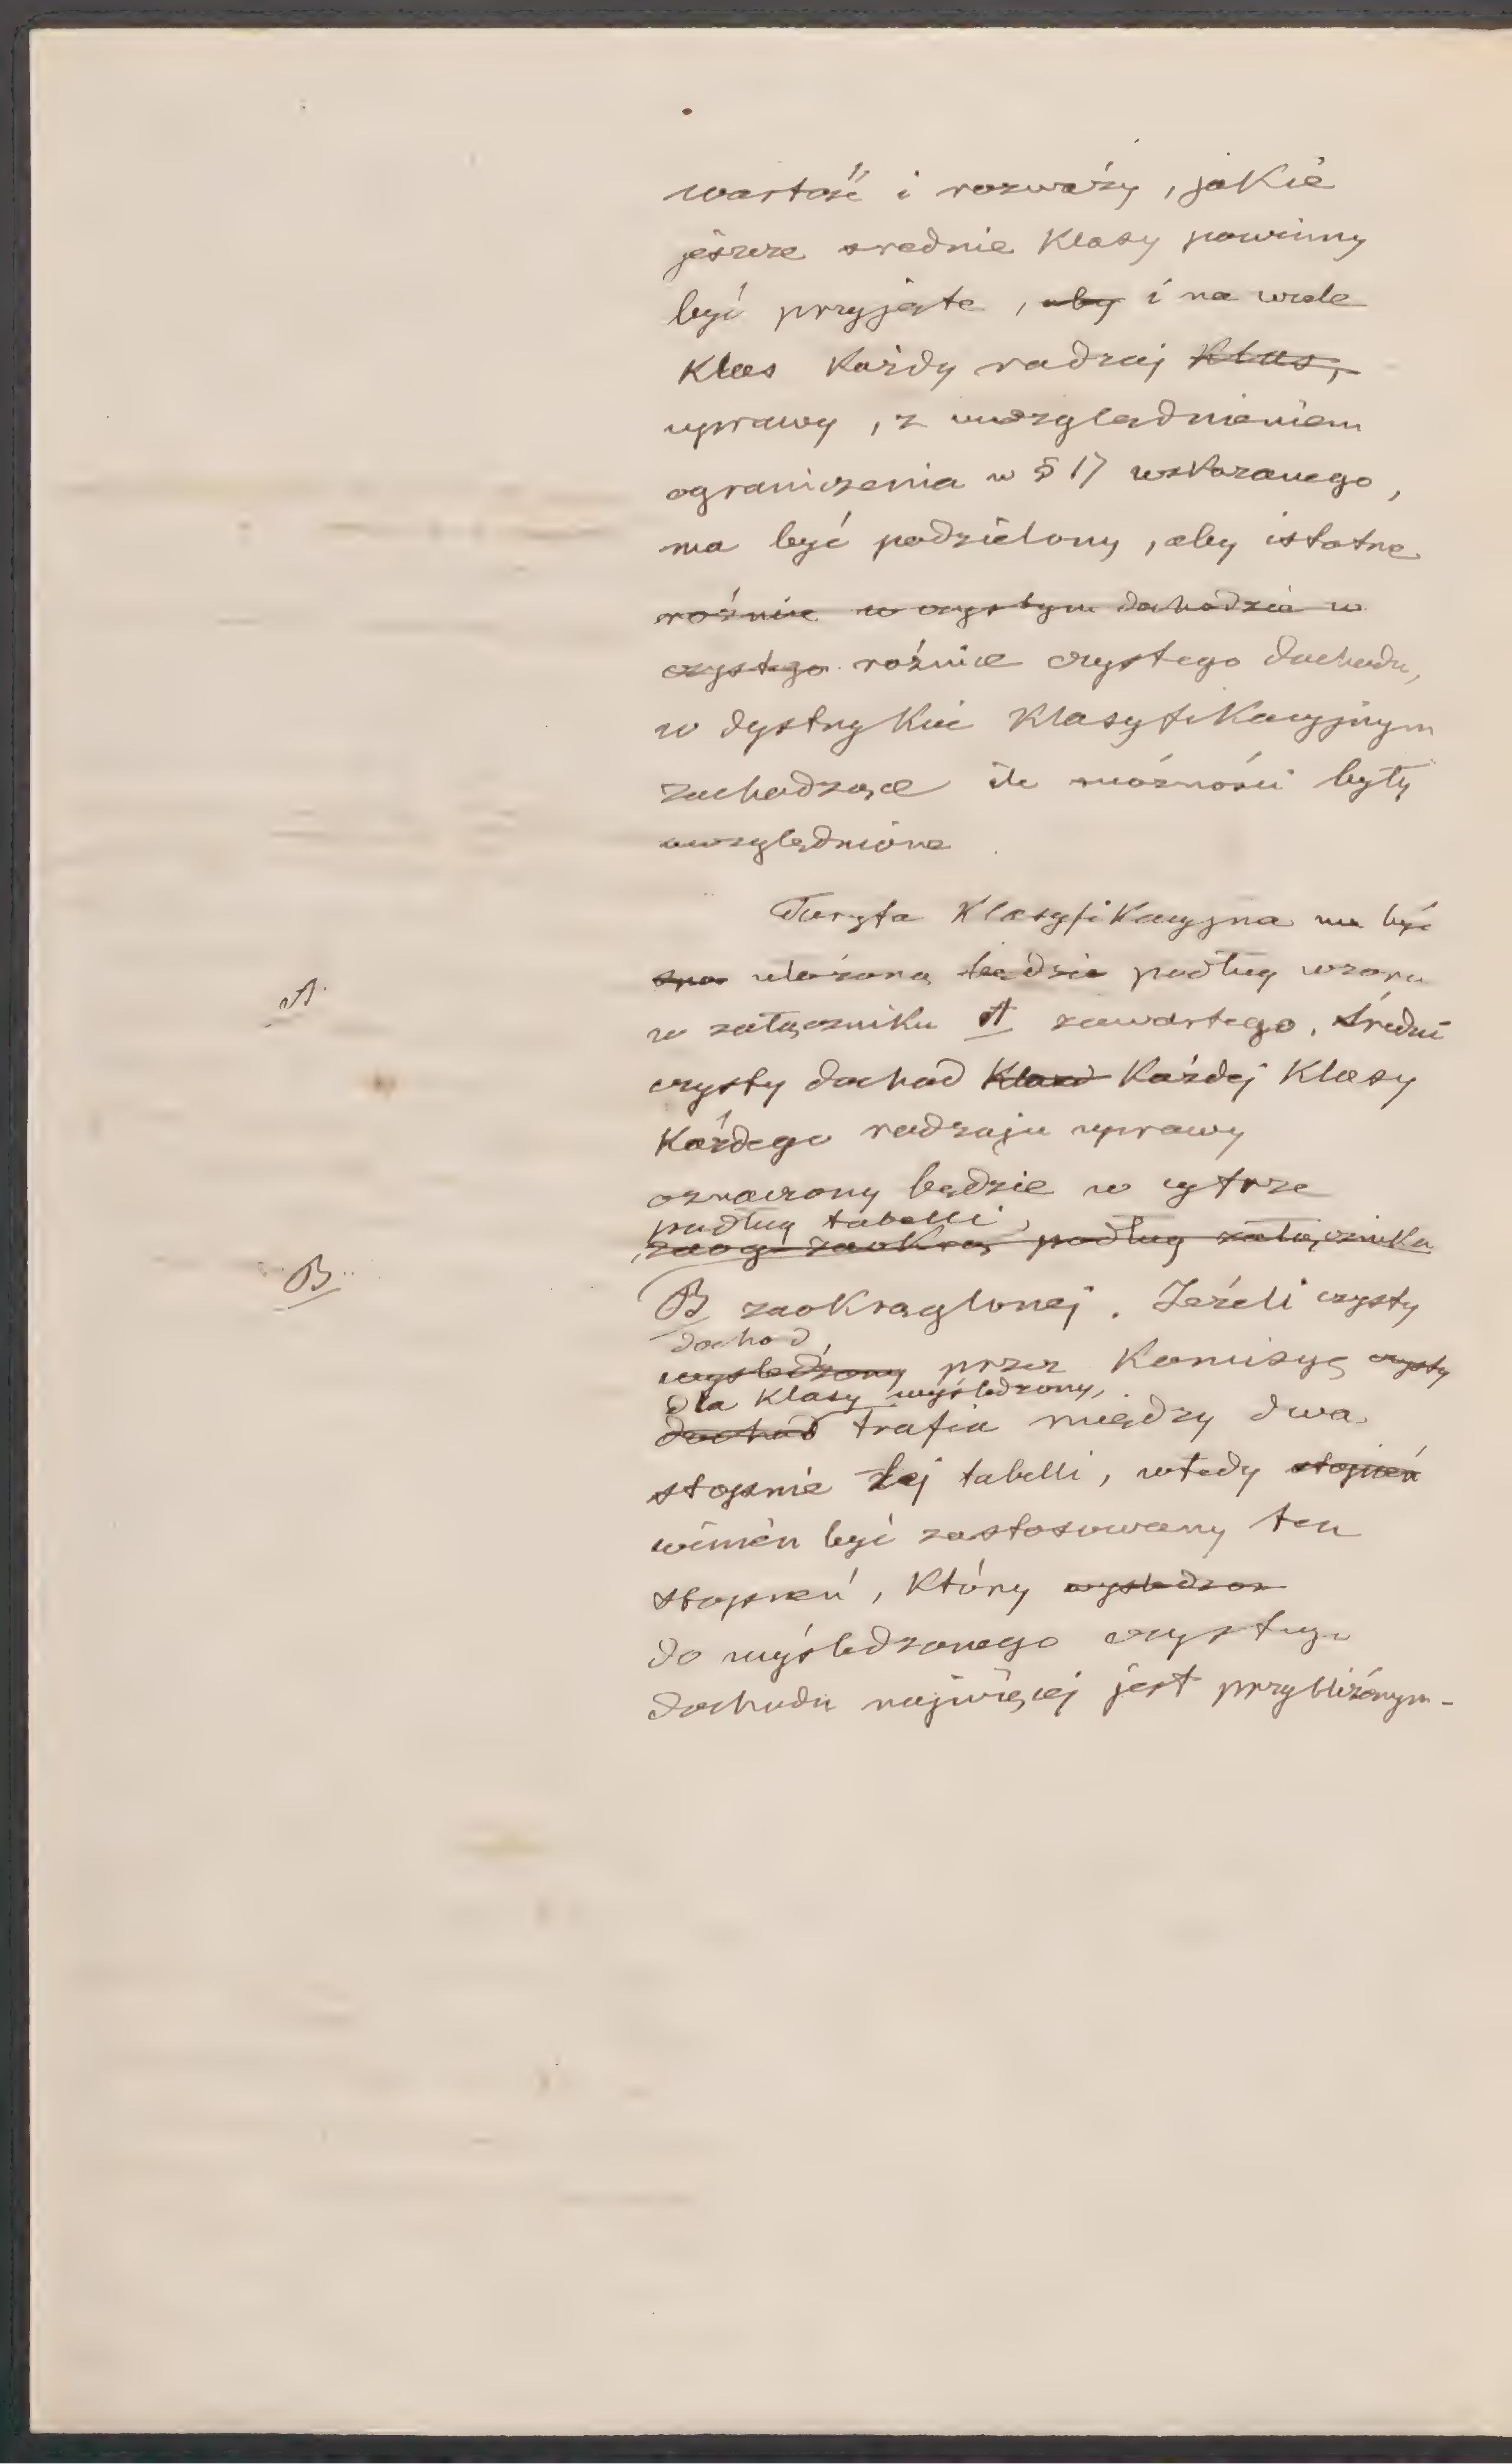 wartość i rozważy, jakie
jeszcze srednie Klasy powinny
być przyjęte, aby i na wiele
Klas Każdy rodzaj Klas,
uprawy, z uwzględnieniem
ograniczenia w § 17 wskazanego,
ma być podzielony, aby istotne
różnice w czystym dochodzie w
czystego różnice czystego dochodu,
w dystrykcie Klasyfikacyjnym
zachodzące ile możności były
uwzględnione
Taryfa Klasyfikacyjna ma być
ułożoną będzie podług wzoru
A.
w załączniku A zawartego. Średni
czysty dochod Klasd Każdej Klasy
Każdego rodzaju uprawy
oznaczony będzie w cyfrze
podług tabelli
zaog zaokrą podług załącznika
B.
B zaokrąglonej. Jeżeli czysty
dochod,
wyśledzony przez Komisyę czysty
dla Klasy wyśledzony,
dochód trafia między dwa
stopnie tej tabelli, wtedy stopień
winien być zastosowany ten
stopień, Który wysledzon
do wyśledzonego czystego
dochodu najwięcej jest przybliżonym-